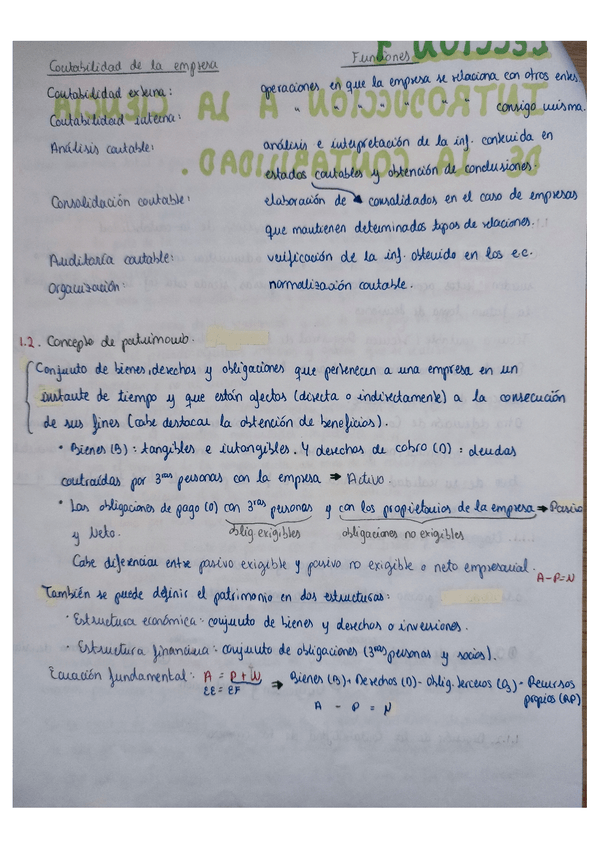 Contabilidad de la empresa Funciones
Contabilidad externa: operaciones en que la empresa se relaciona con otros entes.
Contabilidad interna: " " " " " " " consigo misma.
Análisis contable: análisis e interpretación de la inf. contenida en
estados contables y obtención de conclusiones.
Consolidación contable: elaboración de consolidados en el caso de empresas
que mantienen determinados tipos de relaciones.
Auditoría contable: verificación de la inf. obtenida en los e.c.
Organización: normalización contable.
1.2. Concepto de patrimonio.
Conjunto de bienes, derechos y obligaciones que pertenecen a una empresa en un
instante de tiempo y que están afectos (directa o indirectamente) a la consecución
de sus fines (cabe destacar la obtención de beneficios).
• Bienes (B): tangibles e intangibles. Y derechos de cobro (D): deudas
contraídas por 3ras personas con la empresa ⇒ Activo.
• Las obligaciones de pago (O) con 3ras personas y con los propietarios de la empresa ⇒ Pasivo
y Neto. oblig. exigibles obligaciones no exigibles
Cabe diferenciar entre pasivo exigible y pasivo no exigible o neto empresarial.
A-P=N
También se puede definir el patrimonio en dos estructuras:
• Estructura económica: conjunto de bienes y derechos o inversiones.
• Estructura financiera: conjunto de obligaciones (3ras personas y socios).
Ecuación fundamental: A = P + N → Bienes (B) + Derechos (D) - Oblig. terceros (O3) = Recursos
EE = EF propios (RP)
A - P = N